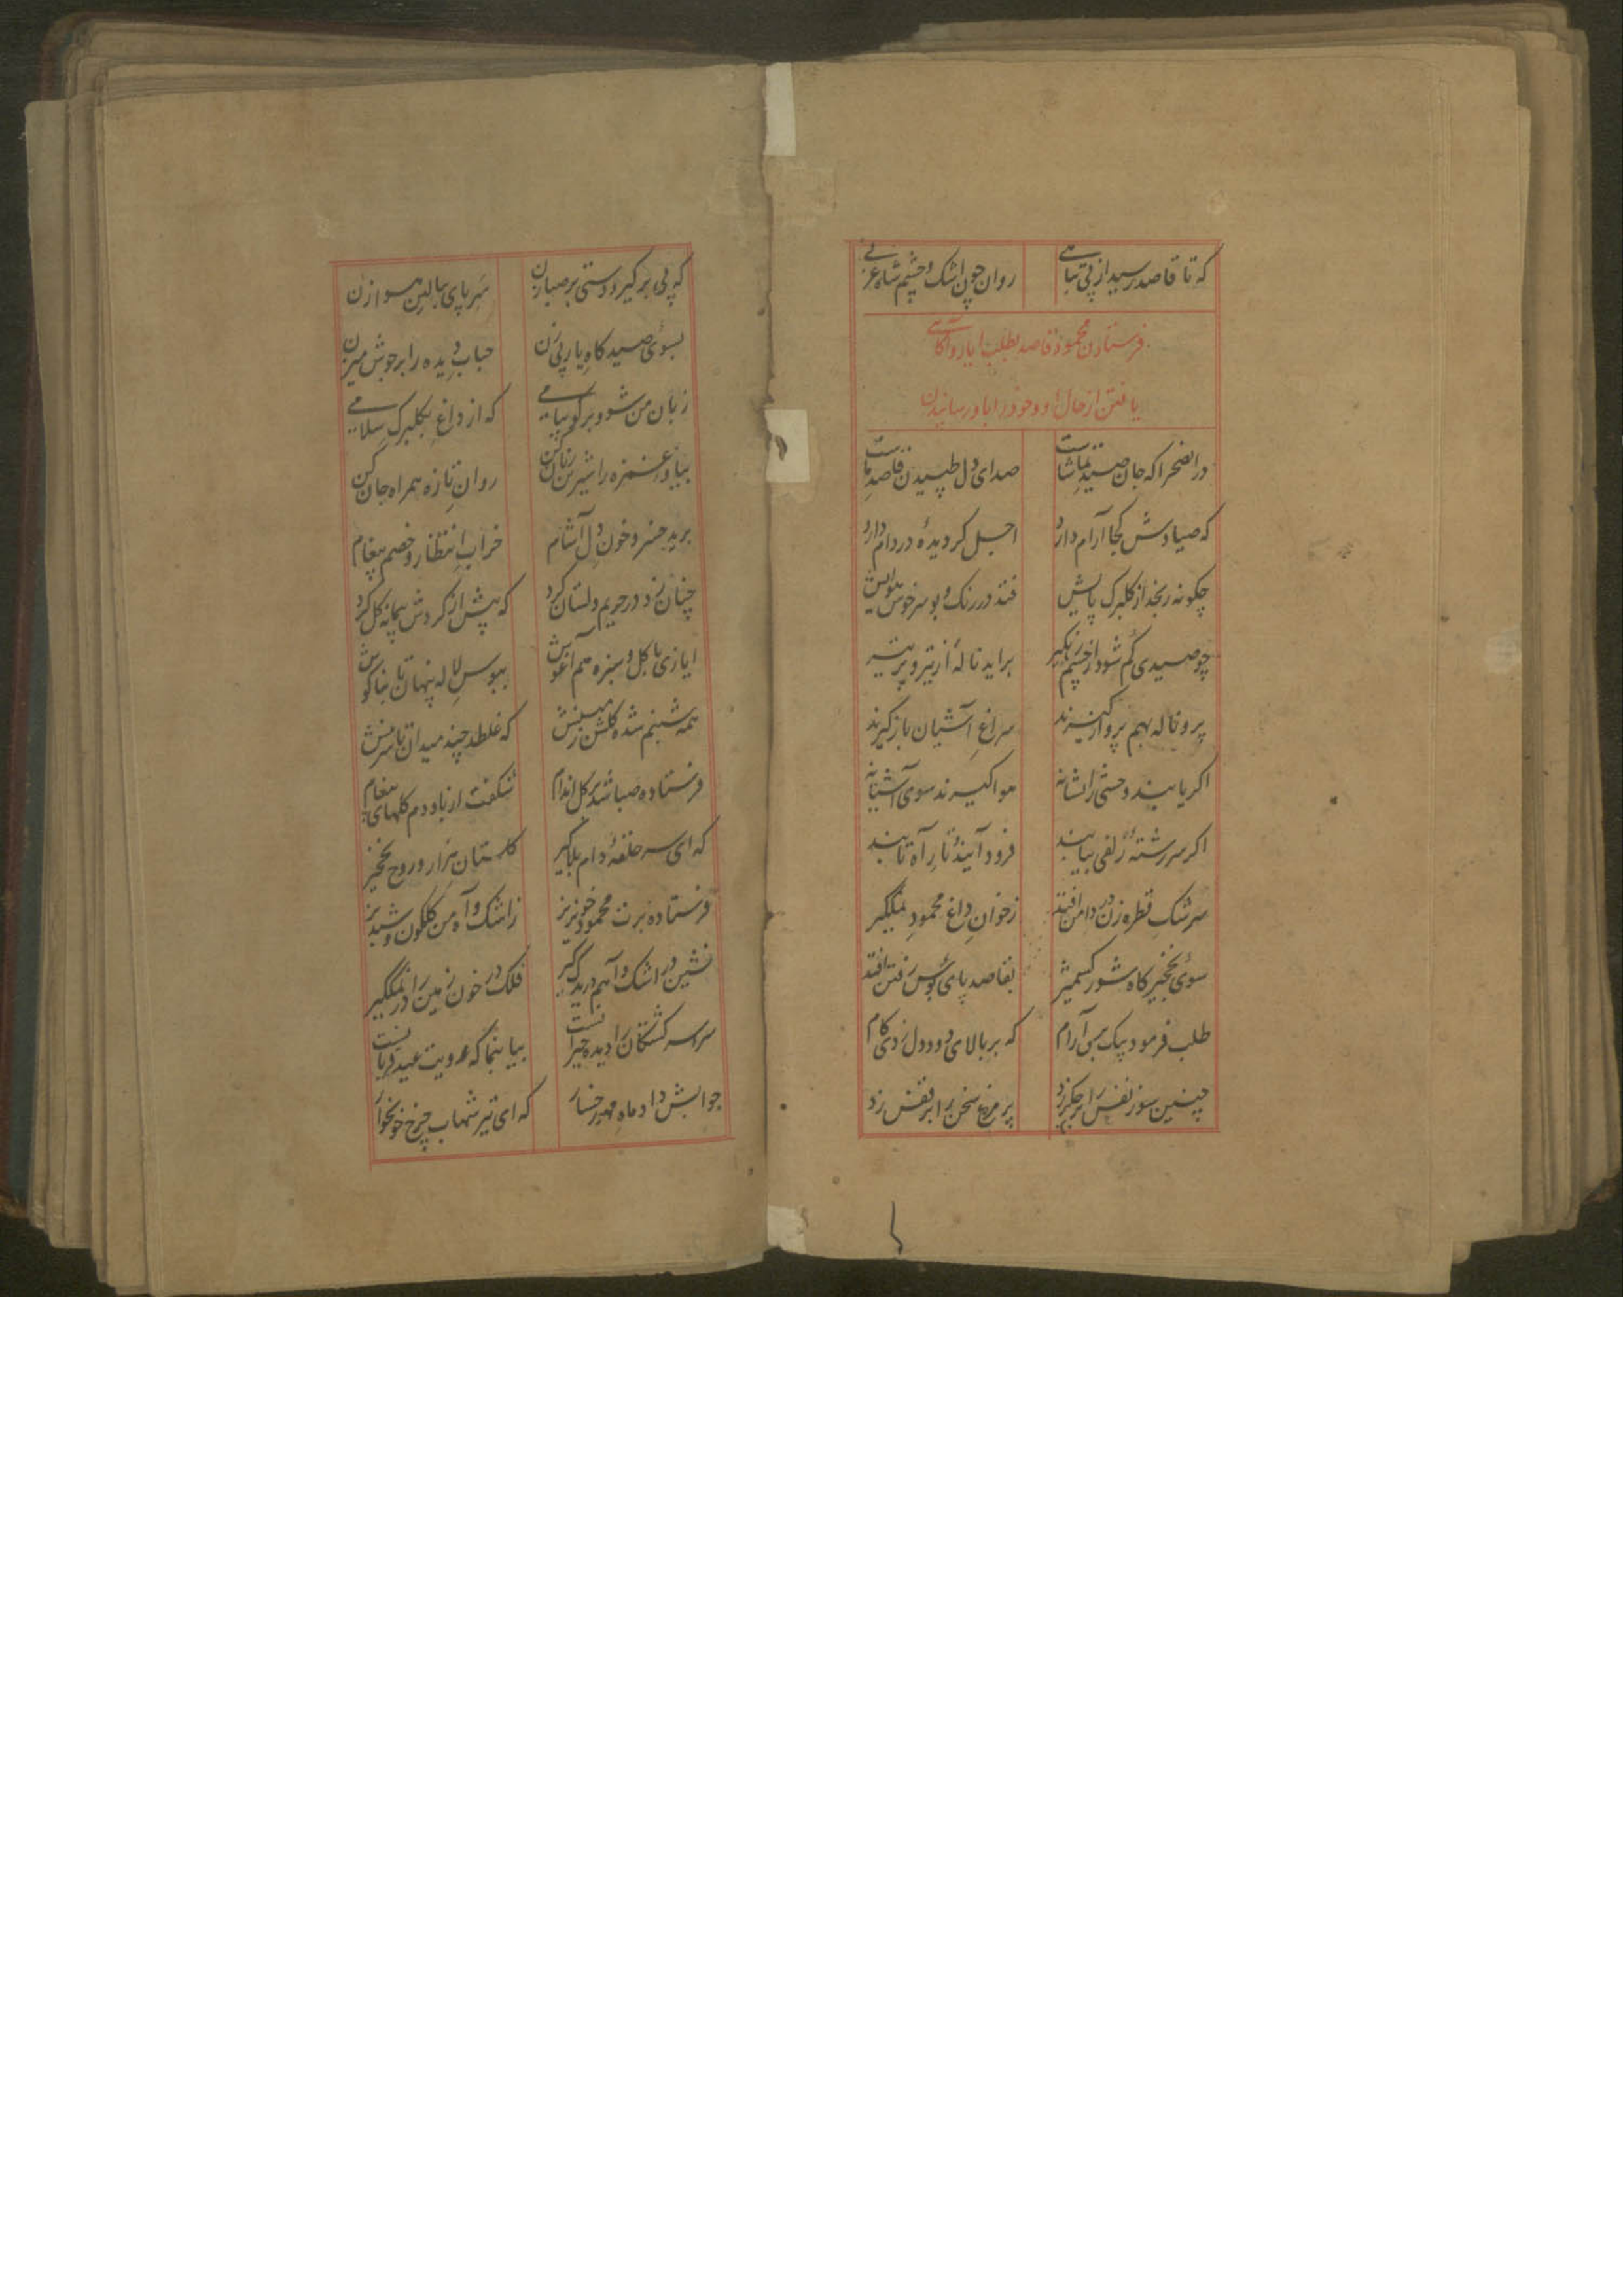 که تا قاصد رسید از پی تباهی روان چون اشک و چشم شاه غزنی
فرستادن محمود قاصد بطلب ایاز و آگاهی
یافتن از حال او و خود را باو رسانیدن
در انصحرا که جان صید تماشاست صدای دل طپیدن قاصد ماست
که صیادش کجا آرام دارد اجل گردیدهٔ در دام دارد
چگونه رنجد از گلبرگ پایش فتد در رنگ و بو سرخوش
چو صیدی گم شود از چشم زهگیر براید نالهٔ از تیر و پر تیر
پر و ناله بهم پرواز گیرند سراغ آشیان باز گیرند
اگر یابند وحشی را نشانه هوا گیرند سوی آشیانه
اگر سررشتهٔ زلفی بیابند فرود آیند و تا راه تابند
سرشک قطره زن در دامن افتد ز خوان داغ محمود نمکگیر
سوی نخجیرگاه شور کشمیر بقاصد پای بوس رفتن افتد
طلب فرمود پیک بی آرام که بر بالای دود دل زدی گام
چنین سوز نفس را بر جگر زد پر مرغ سخن را بر قفس زد
که پی برگیر و دستی بر صبا زن سر پای ببالین هوا زن
بسوی صیدگاه یار پی زن حباب دیده را بر جوش می زن
زبان من شو و برگو پیامی که از داغی بگلبرگ سلامی
بیا و غمزه را شیرین زبان کن روان تازه همراه جان کن
برید خسرو خون دل آشام خراب انتظار و خصم پیغام
چنان زد در حریم دلستان گرد که پیش از گردش پیمانه گل کرد
ایازی با گل و سبزه هم آغوش ببوس لاله پنهان تا بناگوش
همه شبنم شده گلشن ز که غلطد چند میدان تا
فرستاده صبا شد بر گل اندام شگفت از باد دم گلهای پیغام
که ای سر حلقهٔ دام بلاگیر گلستان مزار و روح نخجیر
فرستاده برت محمود خونریز ز اشک و آه من گلگون و شبدیز
نشین در اشک و آهم در بدر گیر فلک در خون زمین را در نمک گیر
سراسر کشتگان را دیده حیرانست بیا بنما که رویت عید قربانست
جوابش داد ماه مهر رخسار که ای تیر شهاب چرخ خونخوار